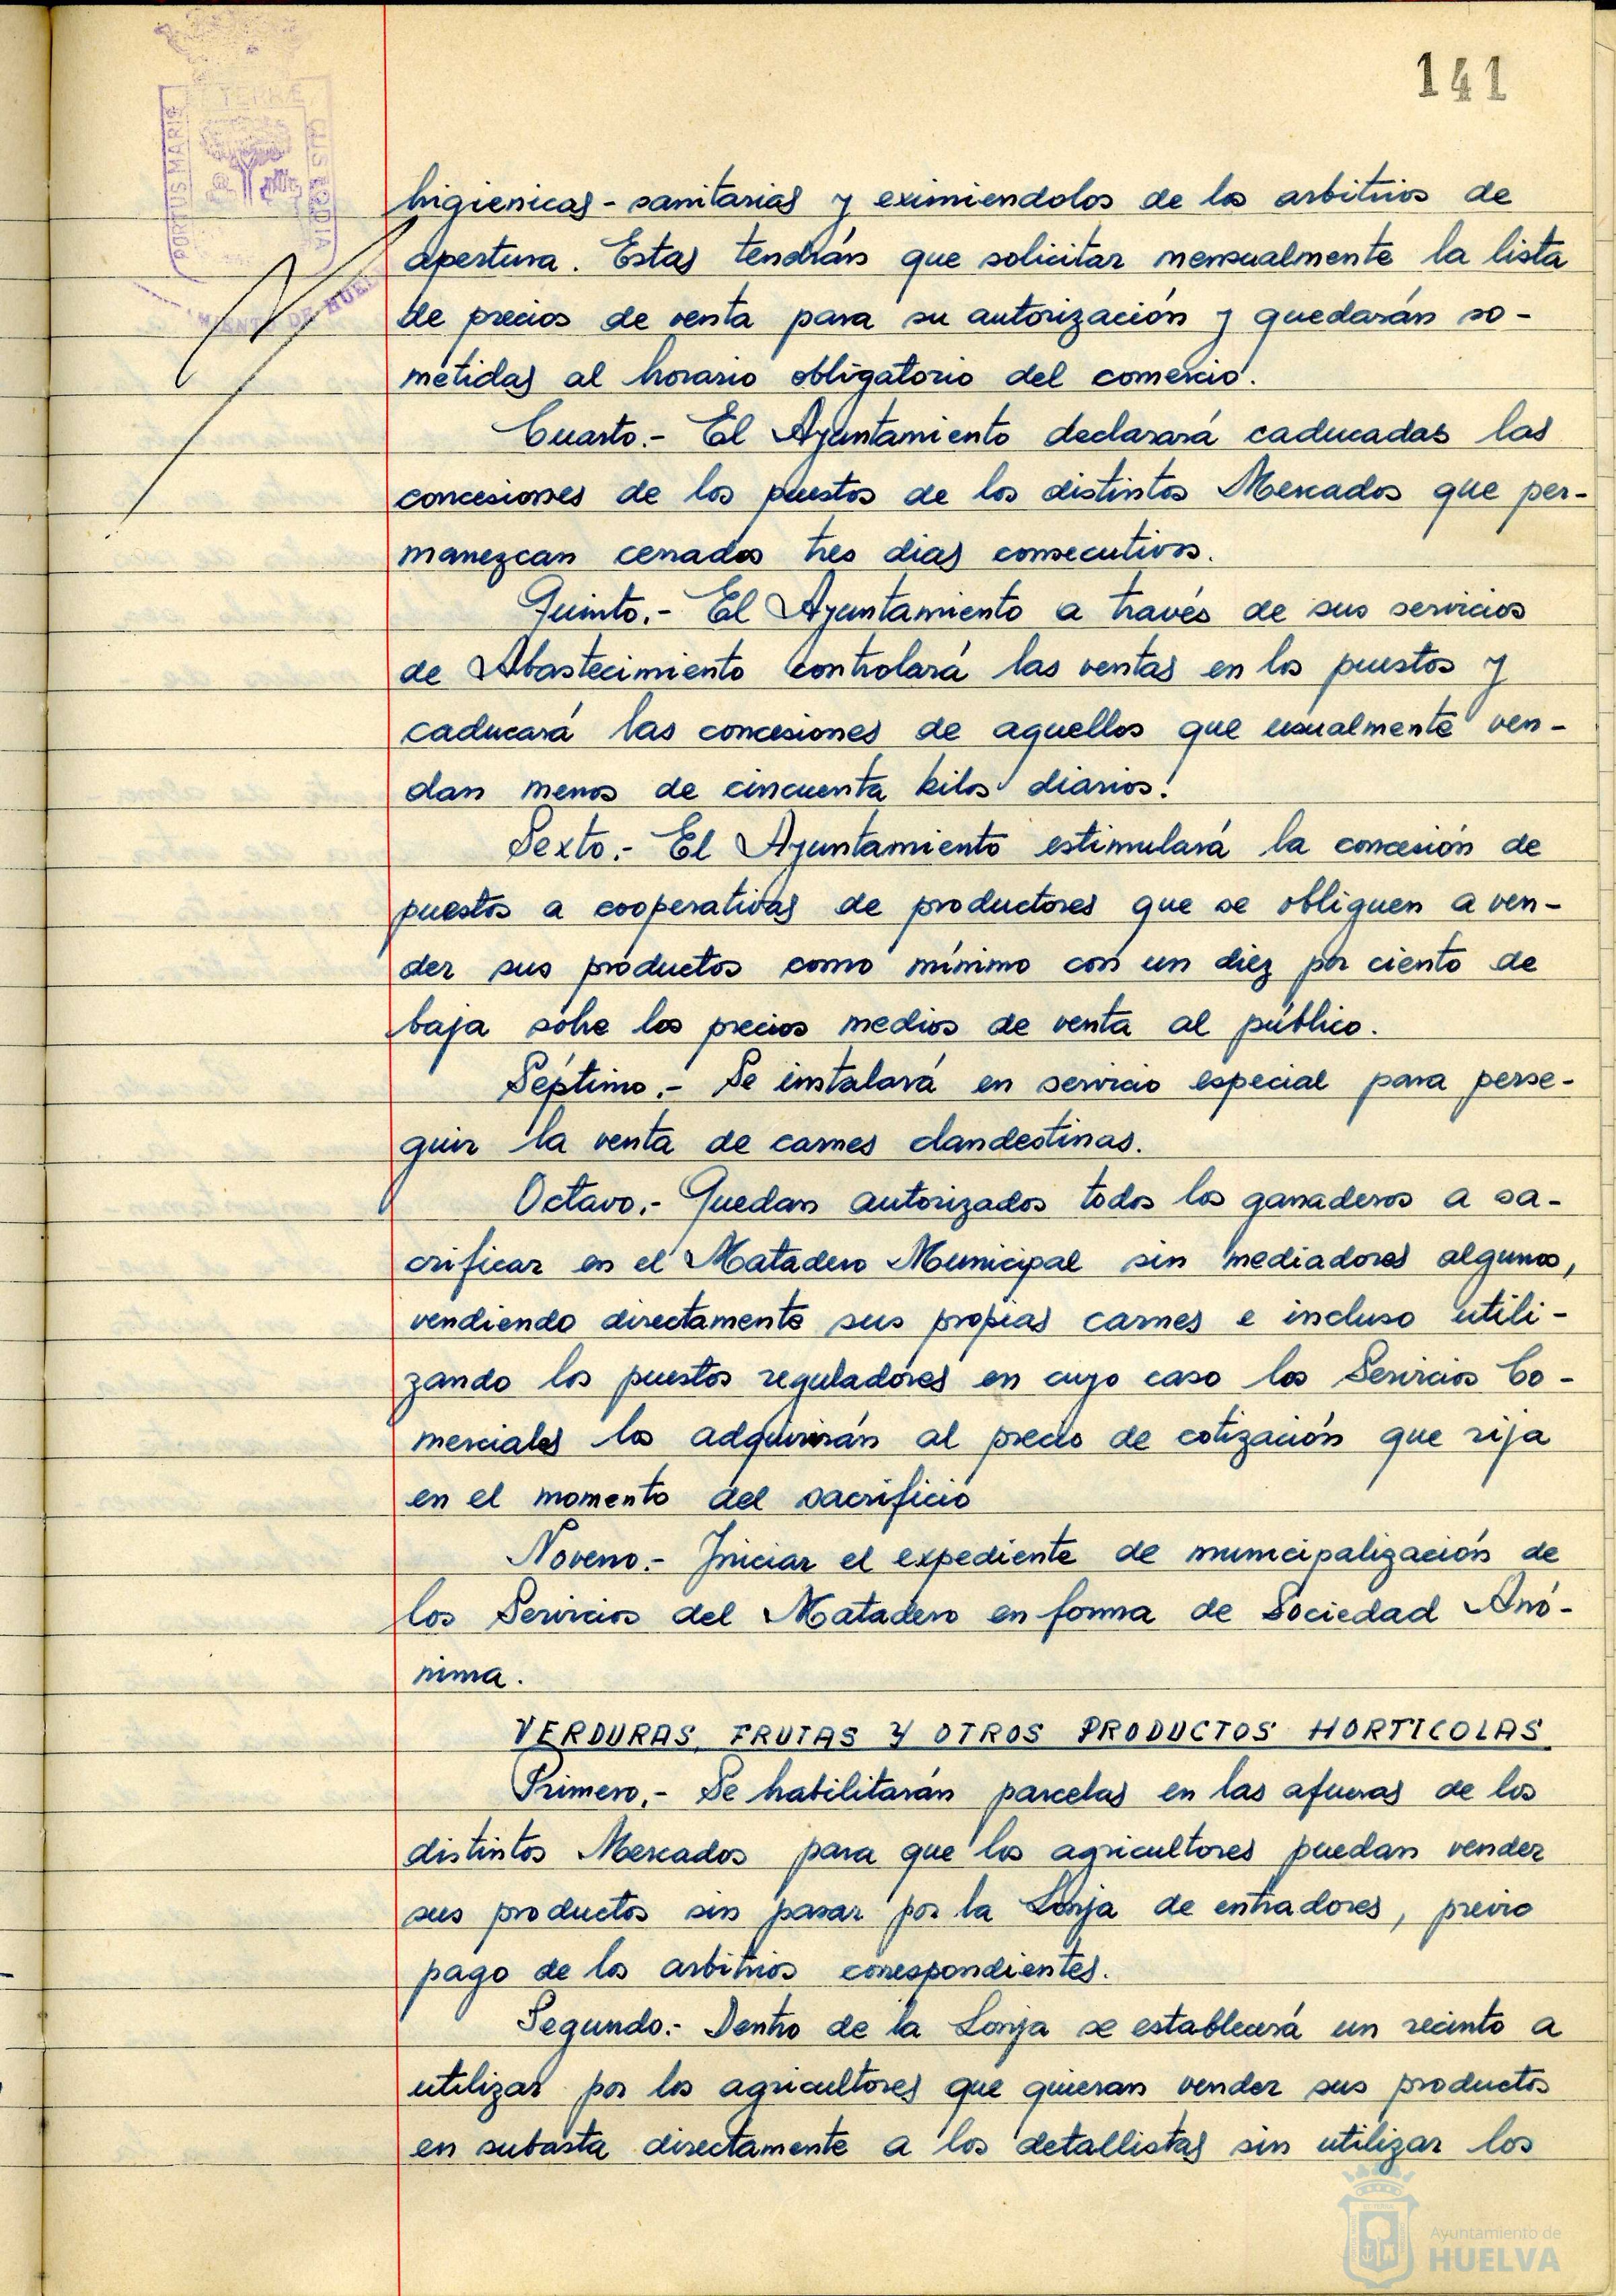 141
PORTUS MARIS
TERRÆ
CUSTODIA
MIENTO DE HUEL
higienicas - sanitarias y eximiendolos de los arbitrios de
apertura. Estas tendrán que solicitar mensualmente la lista
de precios de venta para su autorización y quedarán so-
metidas al horario obligatorio del comercio.
Cuarto.- El Ayuntamiento declarará caducadas las
concesiones de los puestos de los distintos Mercados que per-
manezcan cerrados tres dias consecutivos.
Quinto.- El Ayuntamiento a través de sus servicios
de Abastecimiento controlará las ventas en los puestos y
caducará las concesiones de aquellos que usualmente ven-
dan menos de cincuenta kilos diarios.
Sexto.- El Ayuntamiento estimulará la concesión de
puestos a cooperativas de productores que se obliguen a ven-
der sus productos como mínimo con un diez por ciento de
baja sobre los precios medios de venta al público.
Séptimo.- Se instalará en servicio especial para perse-
guir la venta de carnes clandestinas.
Octavo.- Quedan autorizados todos los ganaderos a sa-
crificar en el Matadero Municipal sin mediadores algunos,
vendiendo directamente sus propias carnes e incluso utili-
zando los puestos reguladores en cuyo caso los Servicios Co-
merciales los adquirirán al precio de cotización que rija
en el momento del sacrificio
Noveno.- Iniciar el expediente de municipalización de
los Servicios del Matadero en forma de Sociedad Anó-
nima.
VERDURAS, FRUTAS Y OTROS PRODUCTOS HORTICOLAS
Primero.- Se habilitarán parcelas en las afueras de los
distintos Mercados para que los agricultores puedan vender
sus productos sin pasar por la Lonja de entradores, previo
pago de los arbitrios correspondientes.
Segundo.- Dentro de la Lonja se establecerá un recinto a
utilizar por los agricultores que quieran vender sus productos
en subasta directamente a los detallistas sin utilizar los
Ayuntamiento de
HUELVA